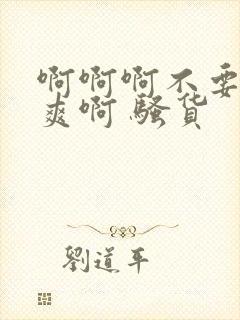 啊啊啊不要
爽啊 骚货
劉道平